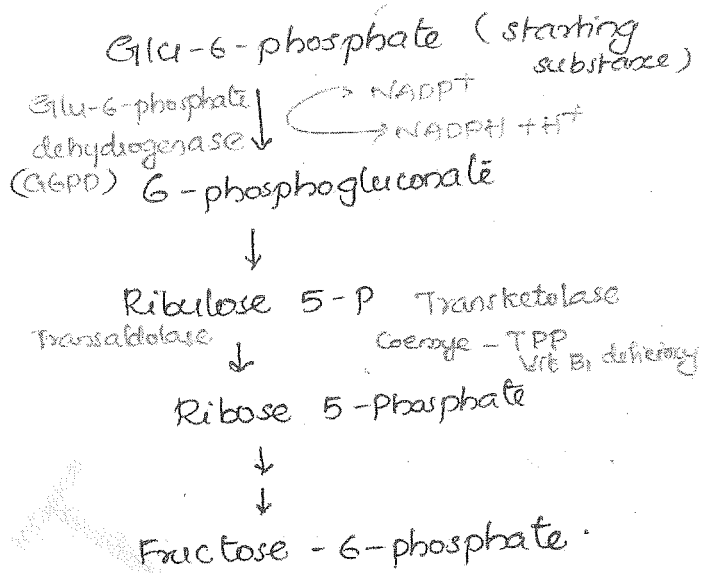 Glu-6-phosphate (starting
substance)
Glu-6-phosphate
dehydrogenase
(G6PD)
NADP+
NADPH + H+
6-phosphogluconate
↓
Ribulose 5-P
Transketolase
Transaldolase
Coenzye - TPP
Vit B1 deficiency
↓
Ribose 5-Phosphate
↓
↓
Fructose - 6-phosphate.